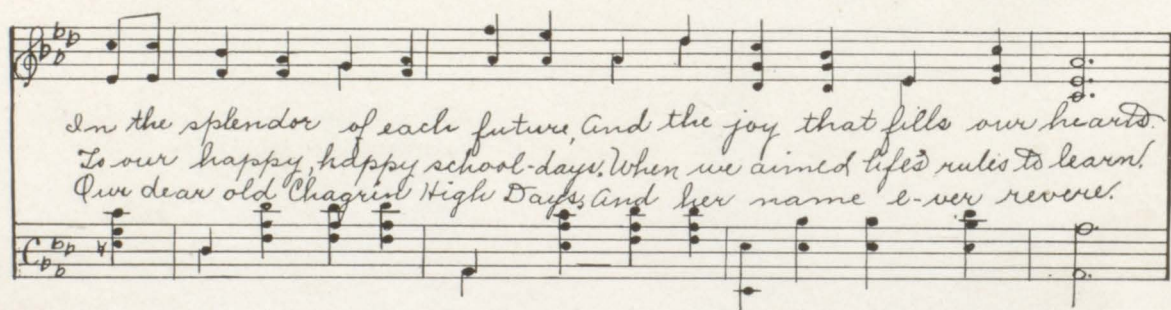 In the splendor of each future, And the joy that fills our hearts.
To our happy, happy school-days. When we aimed life's rules to learn!
Our dear old Chagrin High Days, And her name e-ver revere.